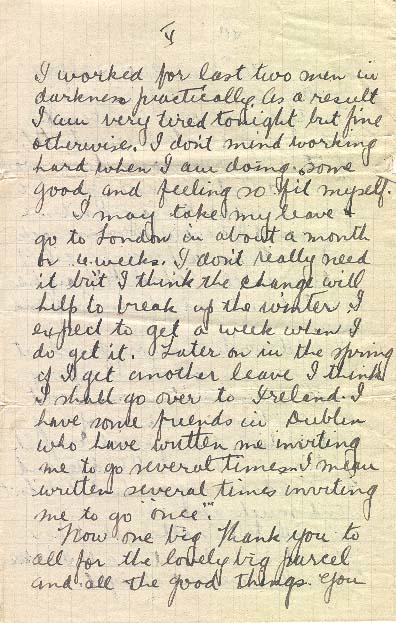 I worked for last two men in
darkness practically. As a result
I am very tired tonight but fine
otherwise. I don't mind working
hard when I am doing some
good and feeling so fit myself.
I may take my leave &
go to London in about a month
or 6 weeks. I don't really need
it but I think the change will
help to break up the winter. I
expect to get a week when I
do get it. Later on in the spring
if I get another leave I think
I shall go over to Ireland. I
have some friends in Dublin
who have written me inviting
me to go several times – I mean
written several times inviting
me to go "once".
Now one big Thank you to
all for the lovely big parcel
and all the good things. You